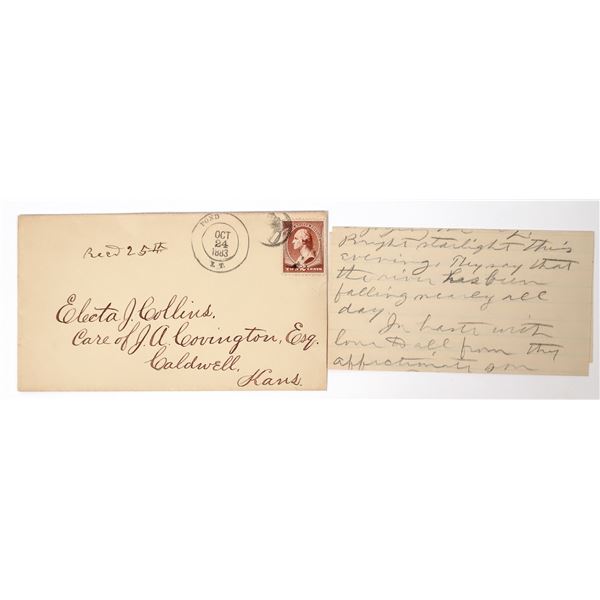 Rec'd 25th
POND
OCT
24
1883
I.T.
TWO 2 CENTS
Electa J. Collins,
Care of J. A. Covington, Esq.
Caldwell,
Kans.
Bright starlight this
evening. They say that
the river has been
falling nearly all
day.
In haste with
love to all from thy
affectionate son